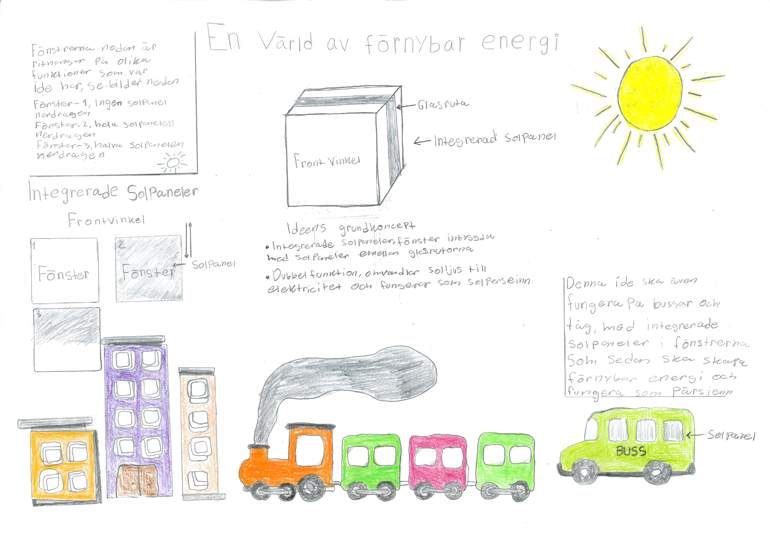 En Värld av förnybar energi
Fönstrerna nedan är
ritningar på olika
funktioner som vår
ide har, se bilder nedan
Fönster-1, ingen solpanel
nerdragen
Fönster-2, hela solpanelen
nerdragen
Fönster-3, halva solpanelen
nerdragen
Integrerade Solpaneler
Frontvinkel
1
Fönster
2
Fönster
Solpanel
3
Glasruta
Integrerad Solpanel
Front Vinkel
Ideens grundkoncept
• Integrerade solpaneler, fönster
med solpaneler emellan glasrutorna
• Dubbelfunktion, omvandlar solljus till
elektricitet och fungerar som
Denna ide ska även
fungera på bussar och
tåg, med integrerade
solpaneler i fönstrerna
som sedan ska skapa
förnybar energi och
fungera som
Solpanel
BUSS